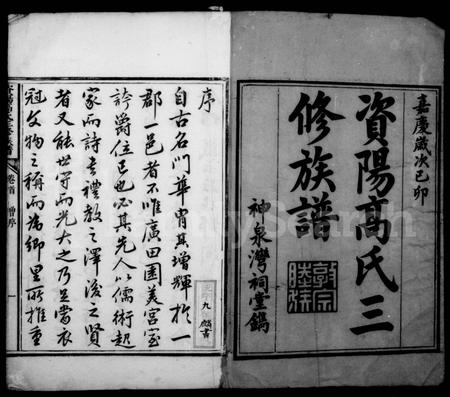 嘉慶歲次己卯
資陽高氏三
修族譜
敦宗睦族
神泉灣祠堂鐫
序
自古名門華胄其增輝於一
郡一邑者不唯廣田園美宮室
誇爵位已也必其先人以儒術起
家而詩書禮教之澤後之賢
者又能世守而光大之乃至當衣
冠文物之稱而為鄉里所推重
卷首
序